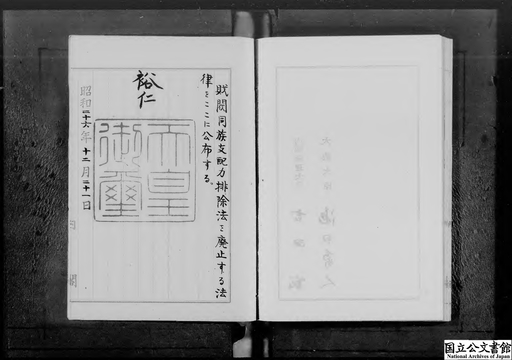 財閥同族支配力排除法を廃止する法
律をここに公布する。
裕仁
天皇
御璽
昭和二十六年十二月二十一日
国立公文書館
National Archives of Japan